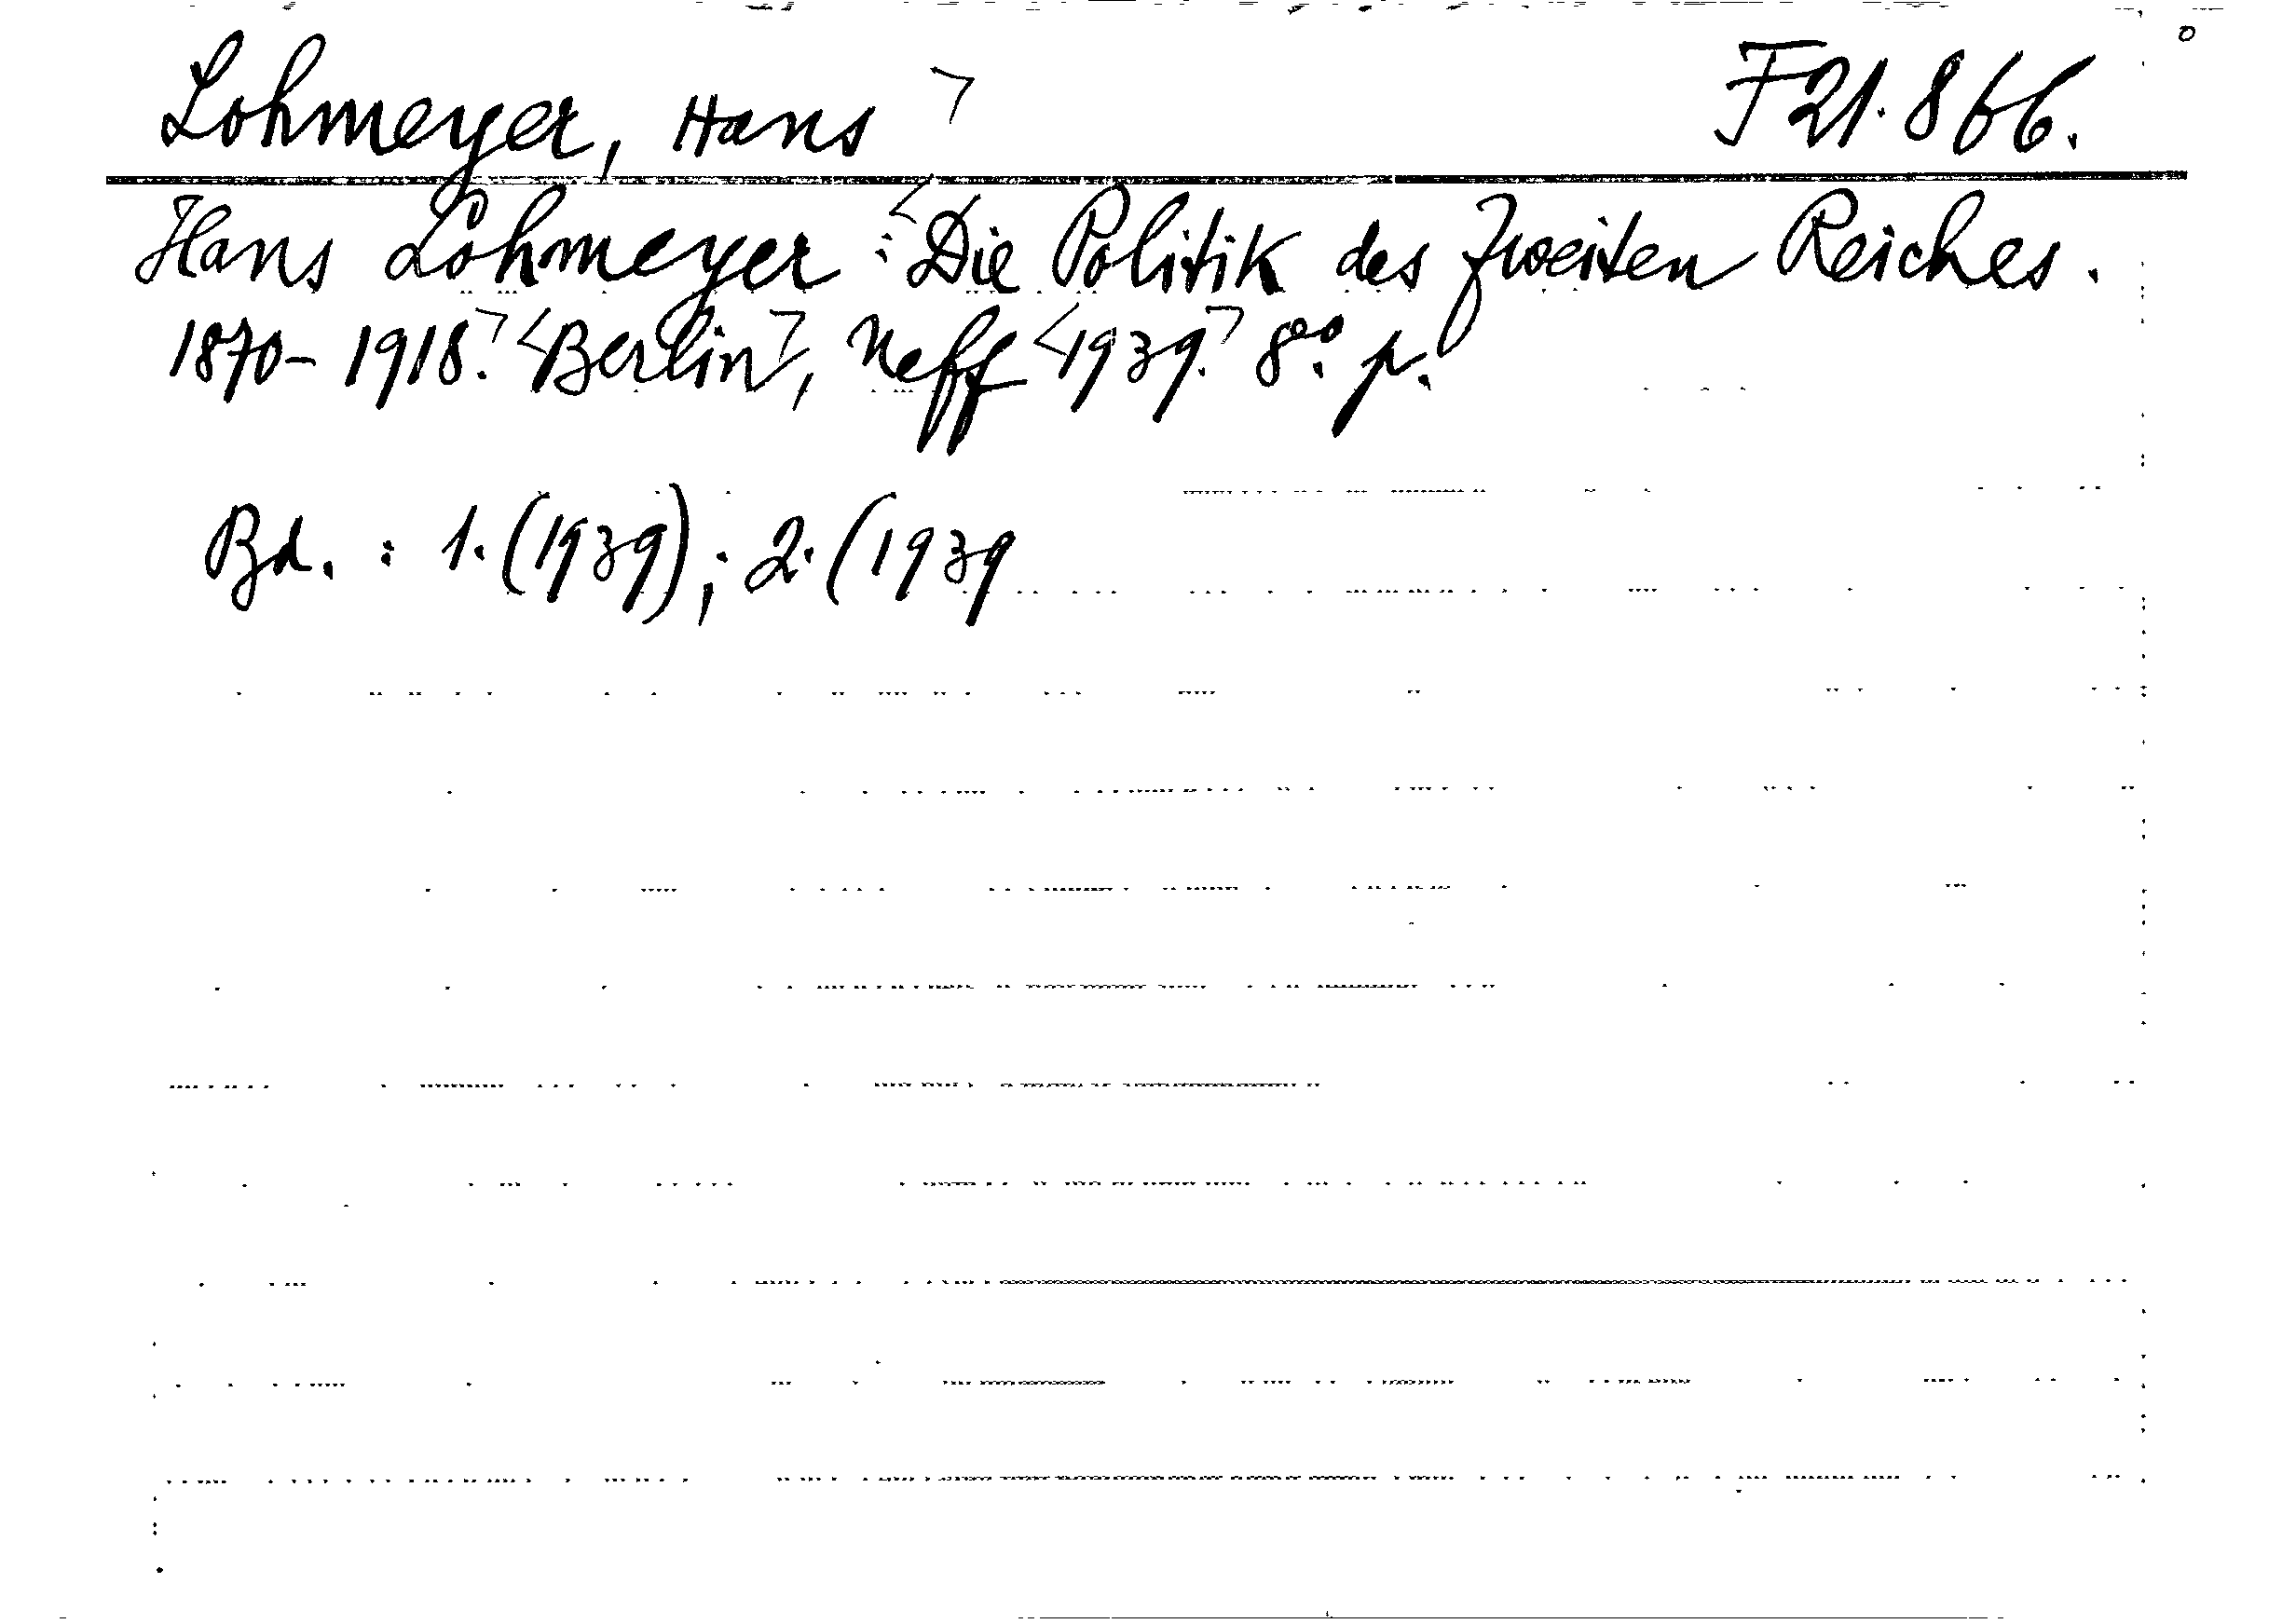 Lohmeyer, Hans F21.866.
Hans Lohmeyer: Die Politik des zweiten Reiches.
1870-1918. Berlin, Neff 1939. 8°. p.
Bd. : 1. (1939); 2. (1939